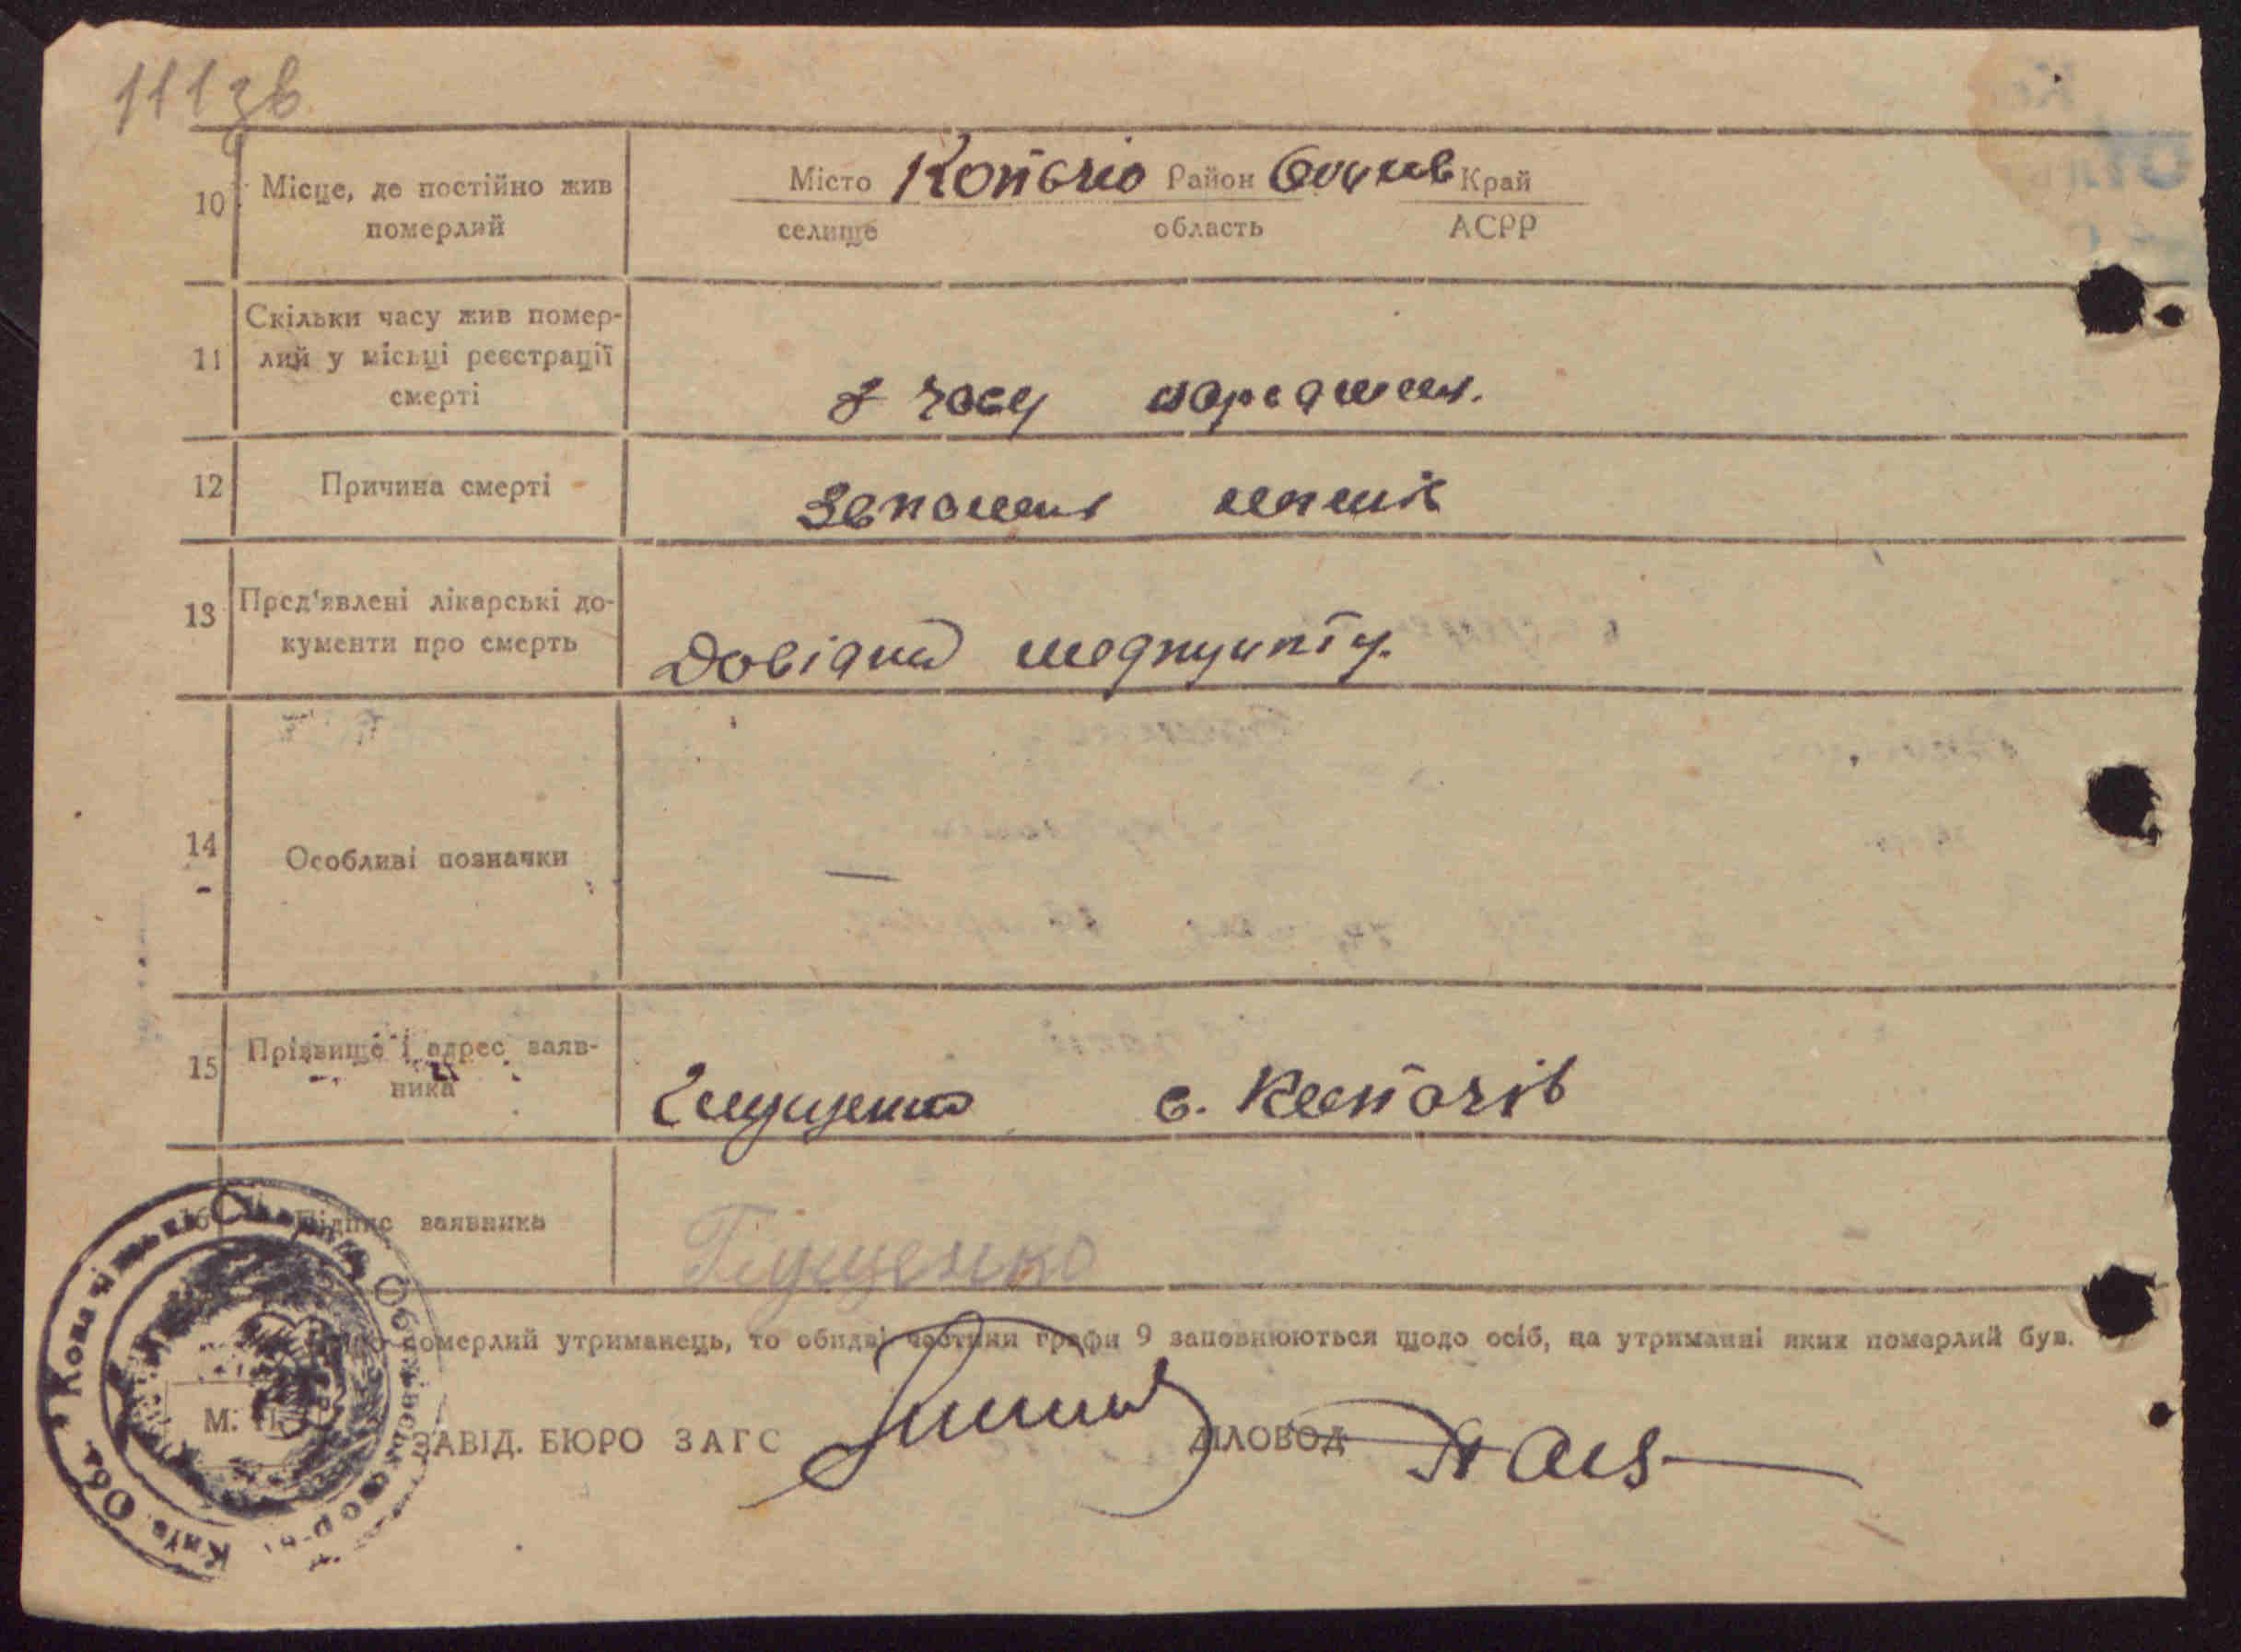 111зв
10 Місце, де постійно жив померлий
Місто Копачів Район Обухів Край
селище область АСРР
11 Скільки часу жив помер-
лий у місьці реєстрації
смерті
з часу народження.
12 Причина смерті
Запалення легенів
13 Пред'явлені лікарські до-
кументи про смерть
Довідка медпункту.
14 Особливі позначки
—
15 Прізвище і адрес заяв-
ника
Глущенко с. Копачів
16 Підпис заявника
Глущенко
померлий утриманець, то обидві частини графи 9 заповнюються щодо осіб, на утриманні яких померлий був.
М. П.
ЗАВІД. БЮРО ЗАГС ДІЛОВОД